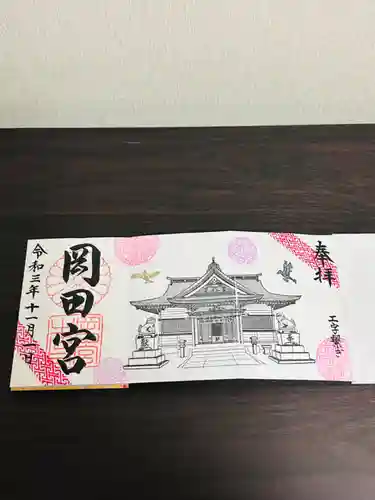 奉拝
工字繋ぎ
岡田宮
令和三年十一月二日